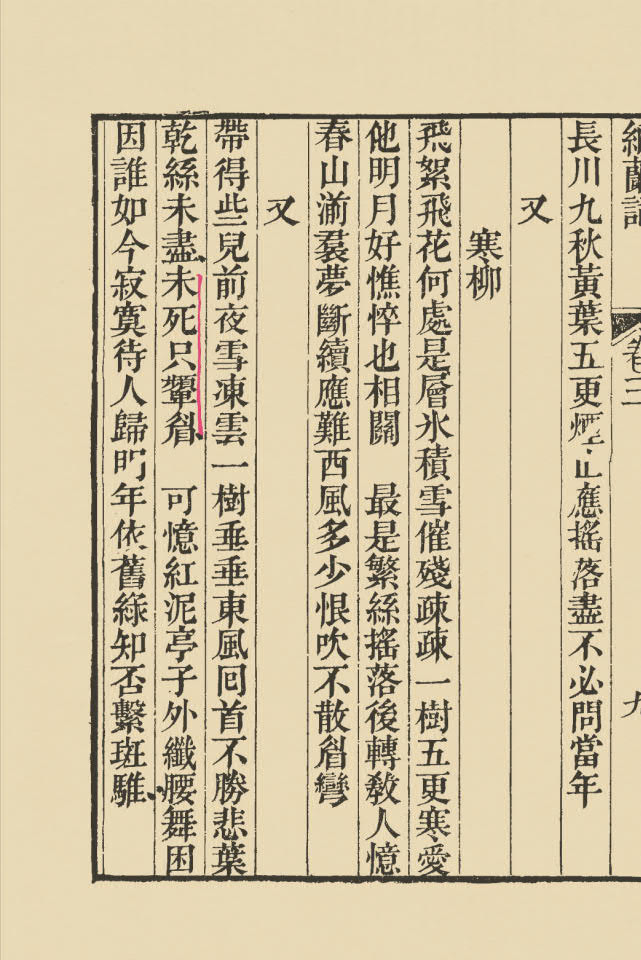 納蘭詞 卷三 九
長川九秋黃葉五更煙止應搖落盡不必問當年
又
寒柳
飛絮飛花何處是層氷積雪催殘疎疎一樹五更寒愛
他明月好憔悴也相關 最是繁絲搖落後轉敎人憶
春山湔裠夢斷續應難西風多少恨吹不散眉彎
又
帶得些兒前夜雪凍雲一樹垂垂東風回首不勝悲葉
乾絲未盡未死只顰眉 可憶紅泥亭子外纖腰舞困
因誰如今寂寞待人歸明年依舊綠知否繫斑騅